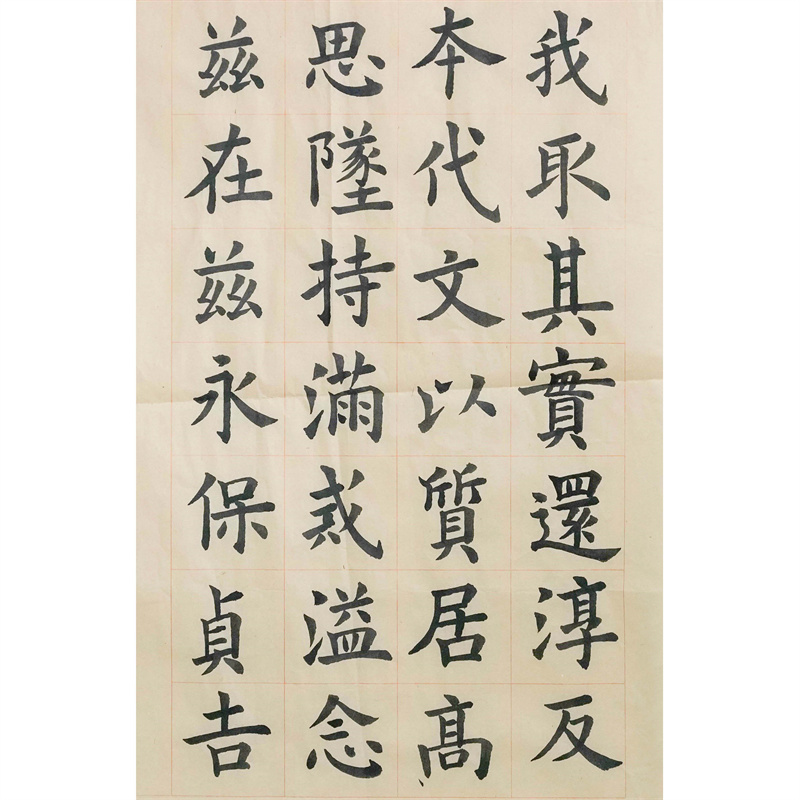 我取其實還淳反
本代文以質居高
思墜持滿戒溢念
兹在兹永保貞吉